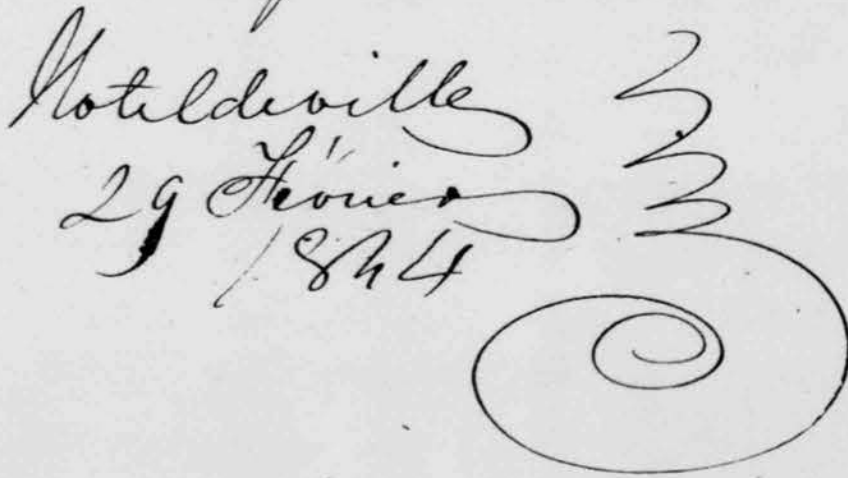 Hoteldeville
29 Février
1844